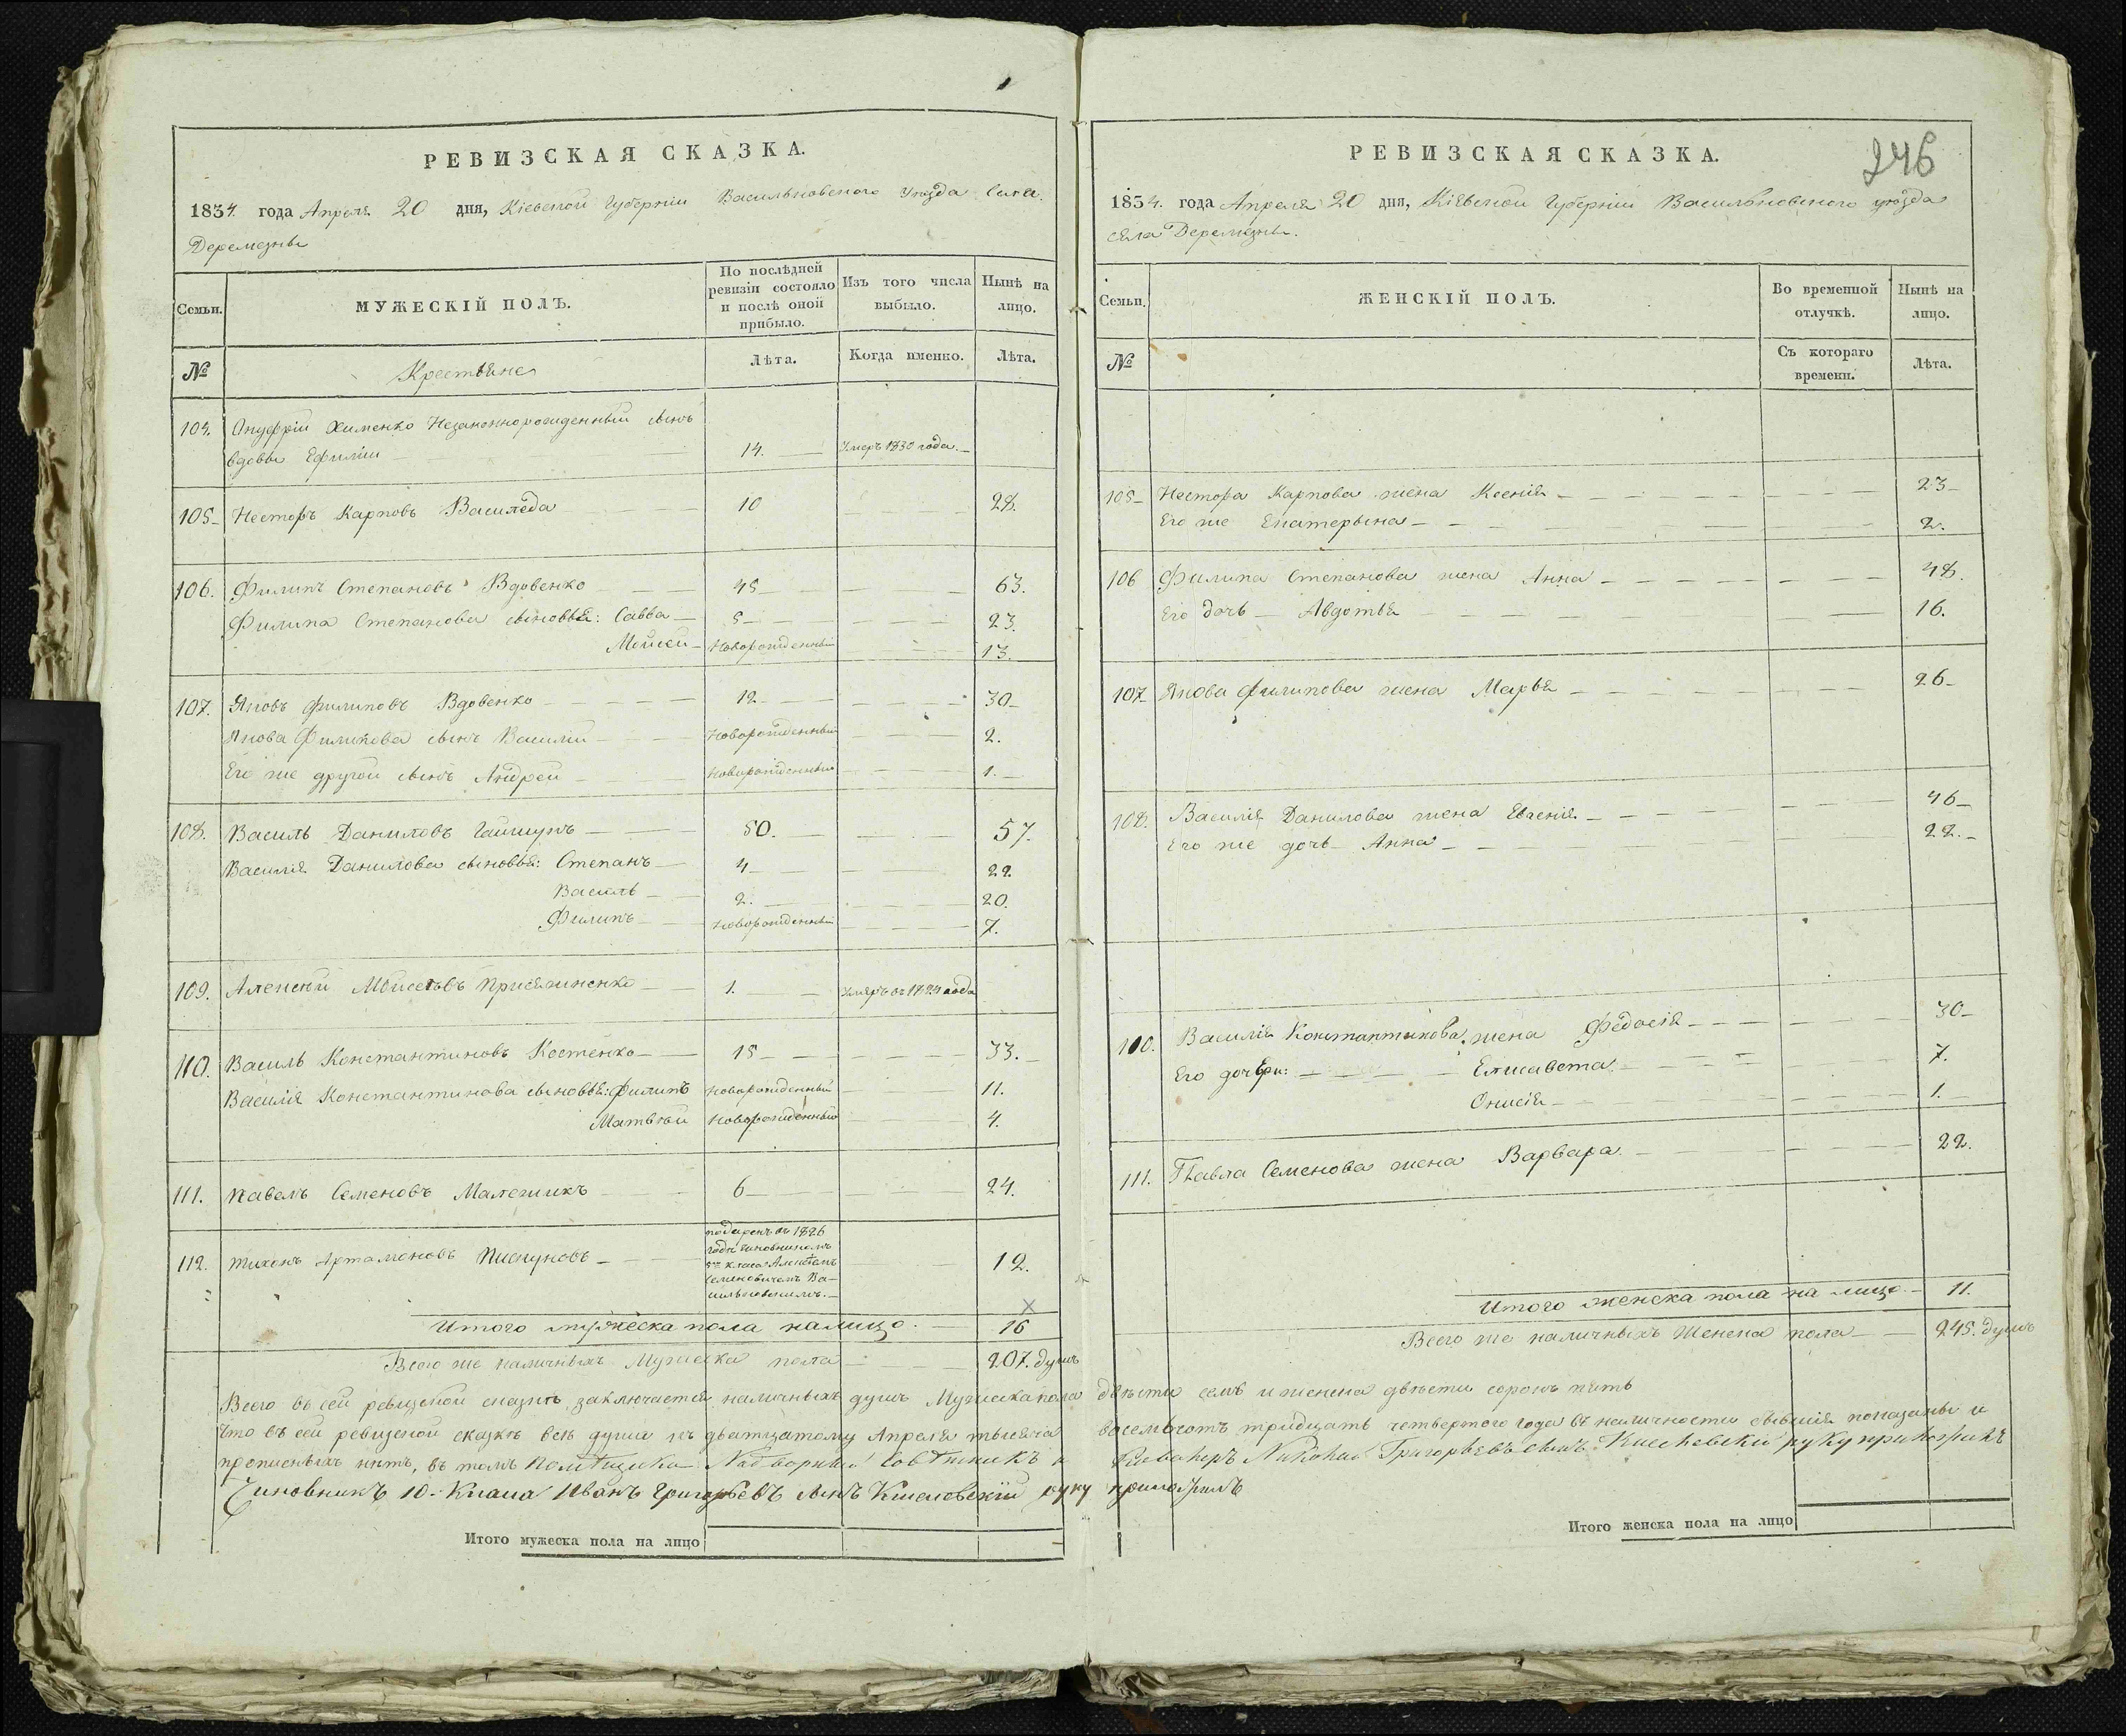 РЕВИЗСКАЯ СКАЗКА.
1834. года Апреля 20 дня, Кіевской Губерніи Васильковскаго уезда Села
Деремезны
Семьи.
МУЖЕСКІЙ ПОЛЪ.
По послѣдней ревизіи состояло и послѣ оной прибыло.
Изъ того числа выбыло.
Нынѣ на лицо.
№
Крестьяне
Лѣта.
Когда именно.
Лѣта.
104. Онуфрій Хименко Незаконнорожденный сынъ
вдовы Ефиміи 14. Умеръ 1830 года.
105 Несторъ Карповъ 10 28.
106. Филипъ Степановъ Вдовенко 45 63.
Филипа Степанова сыновья: Савва 5 23.
Мойсей Новорожденный 13.
107. Яковъ Филиповъ Вдовенко 12 30
Якова Филипова сынъ Василій Новорожденный 2.
Его же другой сынъ Андрей Новорожденный 1.
108. Василь Даниловъ 50. 57.
Василія Данилова сыновья: Степанъ 4 22.
Василь 2. 20.
Филипъ Новорожденный 7.
109. Алексей Мойсеевъ 1. Умеръ въ 1824 года
110. Василь Константиновъ Костенко 15 33.
Василія Константинова сыновья: Филипъ Новорожденный 11.
Матвѣй Новорожденный 4.
111. Павелъ Семеновъ 6 24.
112. Тихонъ Артамоновъ Пискуновъ
подаренъ въ 1826
года чиновникомъ
5го класа
Семеновичемъ Ва-
сильковскимъ.
12.
Итого мужеска пола налицо. 16
Всего же наличныхъ Мужеска пола 207. душъ
РЕВИЗСКАЯ СКАЗКА.
246
1834. года Апреля 20 дня, Кіевской Губерніи Васильковскаго уѣзда
села Деремезны.
Семьи.
ЖЕНСКІЙ ПОЛЪ.
Во временной отлучкѣ.
Нынѣ на лицо.
№
Съ котораго времени.
Лѣта.
105 Нестора Карпова жена Ксенія 23
Его же Екатерына 2.
106 Филипа Степанова жена Анна 48.
Его дочь Авдотья 16.
107 Якова Филипова жена Марья 26
108. Василія Данилова жена Евгенія 46
Его же дочь Анна 22.
110. Василія Константинова жена Федосія 30
Его дочери: Елисавета 7.
Онисія 1.
111. Павла Семенова жена Варвара 22.
Итого женска пола на лицо 11.
Всего же наличныхъ Женска пола 245. душъ
Всего въ сей ревизской сказкѣ заключается наличныхъ душъ Мужеска пола двѣсти семь и женска двѣсти сорокъ пять
Что въ сей ревизской сказкѣ всѣ души къ дватцатому Апреля тысяча восемьсотъ тридцать четвертого года въ наличности бывшія показаны и
прописныхъ нѣтъ, въ томъ Помѣщикъ Надворный Совѣтникъ и Кавалеръ Николай Григорьевъ сынъ Киселевскій руку приложилъ
Чиновникъ 10. Класа Иванъ Григорьевъ сынъ Киселовскій руку приложилъ
Итого мужеска пола на лицо
Итого женска пола на лицо